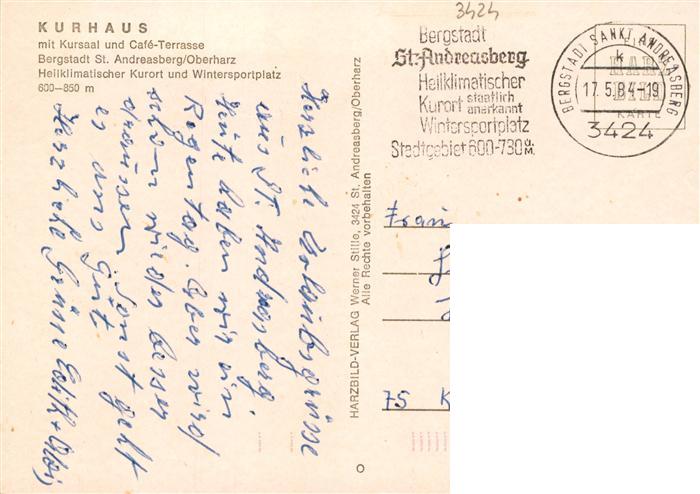 KURHAUS
mit Kursaal und Café-Terrasse
Bergstadt St. Andreasberg/Oberharz
Heilklimatischer Kurort und Wintersportplatz
600—850 m
Herzliche Urlaubsgrüsse
aus St. Andreasberg.
Heute haben wir ein
Regentag. Aber wird
schon wieder besser
draussen. Sonst geht
es uns gut
Herzliche Grüsse Edith +
HARZBILD-VERLAG Werner Stille, 3424 St. Andreasberg/Oberharz
Alle Rechte vorbehalten
O
3424
Bergstadt
St. Andreasberg
Heilklimatischer
Kurort staatlich
anerkannt
Wintersportplatz
Stadtgebiet 600-730 ü.M.
BERGSTADT SANKT ANDREASBERG
k
17.5.84-19
3424
HARZ
BILD
KARTE
Frau
75 K